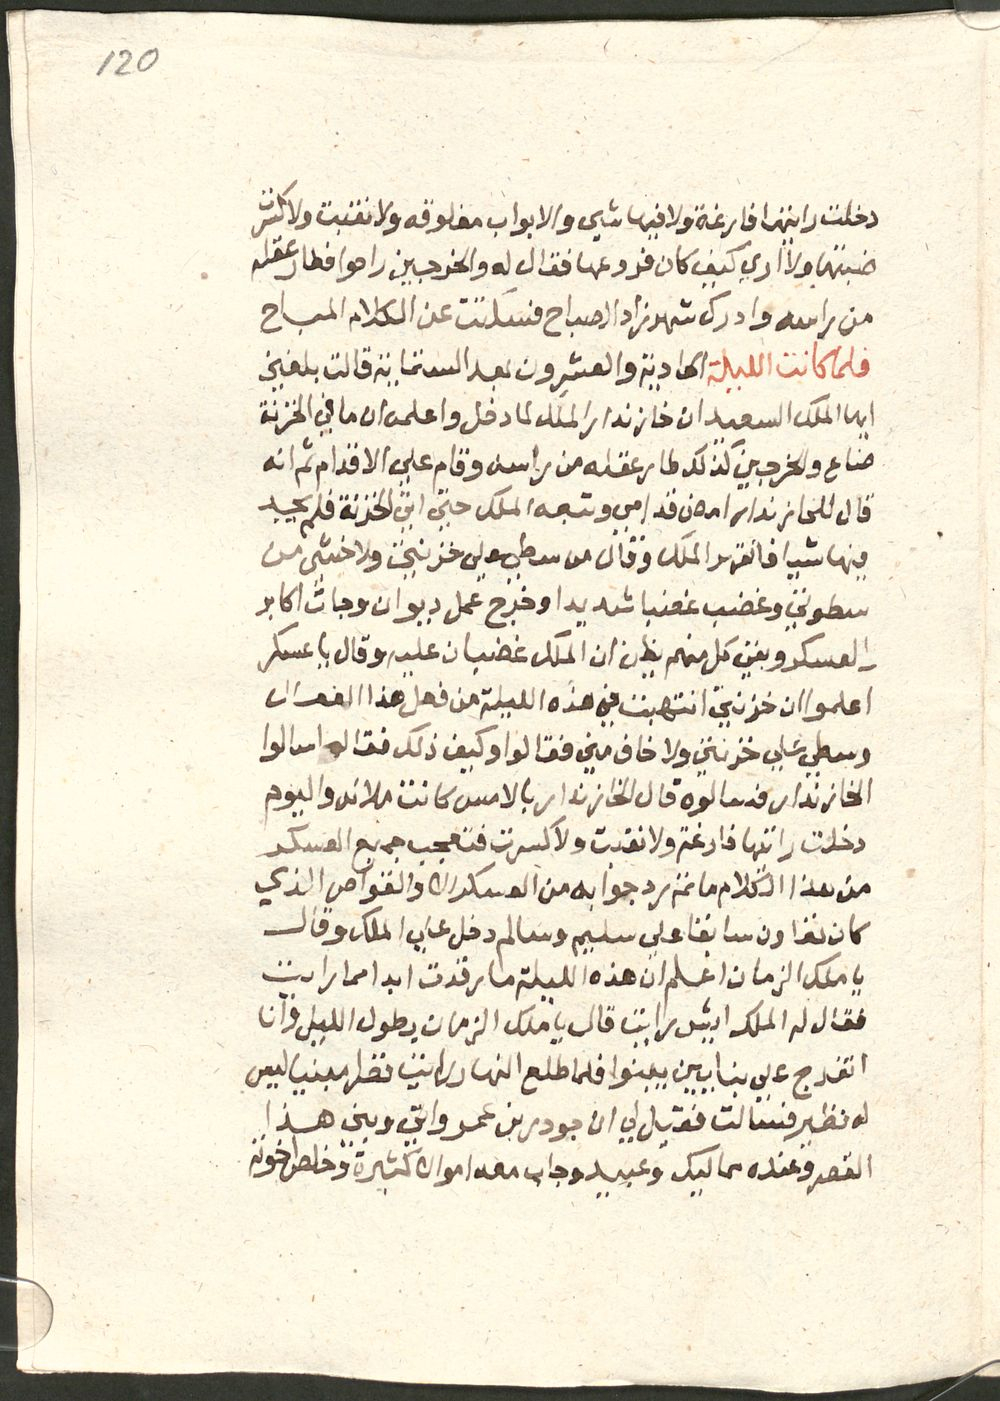 120
دخلت رايتها فارغة ولا فيها شي والابواب مغلوقه ولا نقبت ولا كسرت
ضبتها ولا ادري كيف كان فروعها فقال له والخرجين راحوا فطار عقله
من راسه وادرك شهرزاد الصباح فسكتت عن الكلام المباح
فلما كانت الليلة الحادية والعشرون بعد الستماية قالت بلغني
ايها الملك السعيد ان خازندار الملك لما دخل واعلمه ان ما في الخزنة
ضاع والخرجين كذلك طار عقله من راسه وقام علي الاقدام ثم انه
قال للخازندار امض قدامي وتبعه الملك حتي اتي الخزنة فلم يجد
فيها شيا فانقهر الملك وقال من سطي علي خزنتي ولا خشي من
سطوتي وغضب غضبا شديدا وخرج عمل ديوان وجات اكابر
العسكر وبقي كل منهم يظن ان الملك غضبان عليه وقال يا عسكر
اعلموا ان خزنتي انتهبت في هذه الليلة من فعل هذا الفعال
وسطي علي خزنتي ولا خاف مني فقالوا وكيف ذلك فقال اسالوا
الخازندار فسالوه قال الخازندار بالامس كانت ملانه واليوم
دخلت رايتها فارغة ولا نقبت ولا كسرت فتعجب جميع العسكر
من هذا الكلام ما تم يرد جوابه من العسكر الا والقواص الذي
كان سابقا علي سليم وسالم دخل علي الملك وقال
يا ملك الزمان اعلم ان هذه الليلة ما رقدت ابدا مما رايت
فقال له الملك ايش رايت قال يا ملك الزمان بطول الليل وانا
اتفرج علي بنايين يبنوا فلما طلع النهار رايت قصر مبنيا ليس
له نظير فسالت فقيل لي ان جودر بن عمر واتي وبني هذا
القصر وعنده مماليك وعبيد وجاب معه اموال كثيرة وخلص اخوته